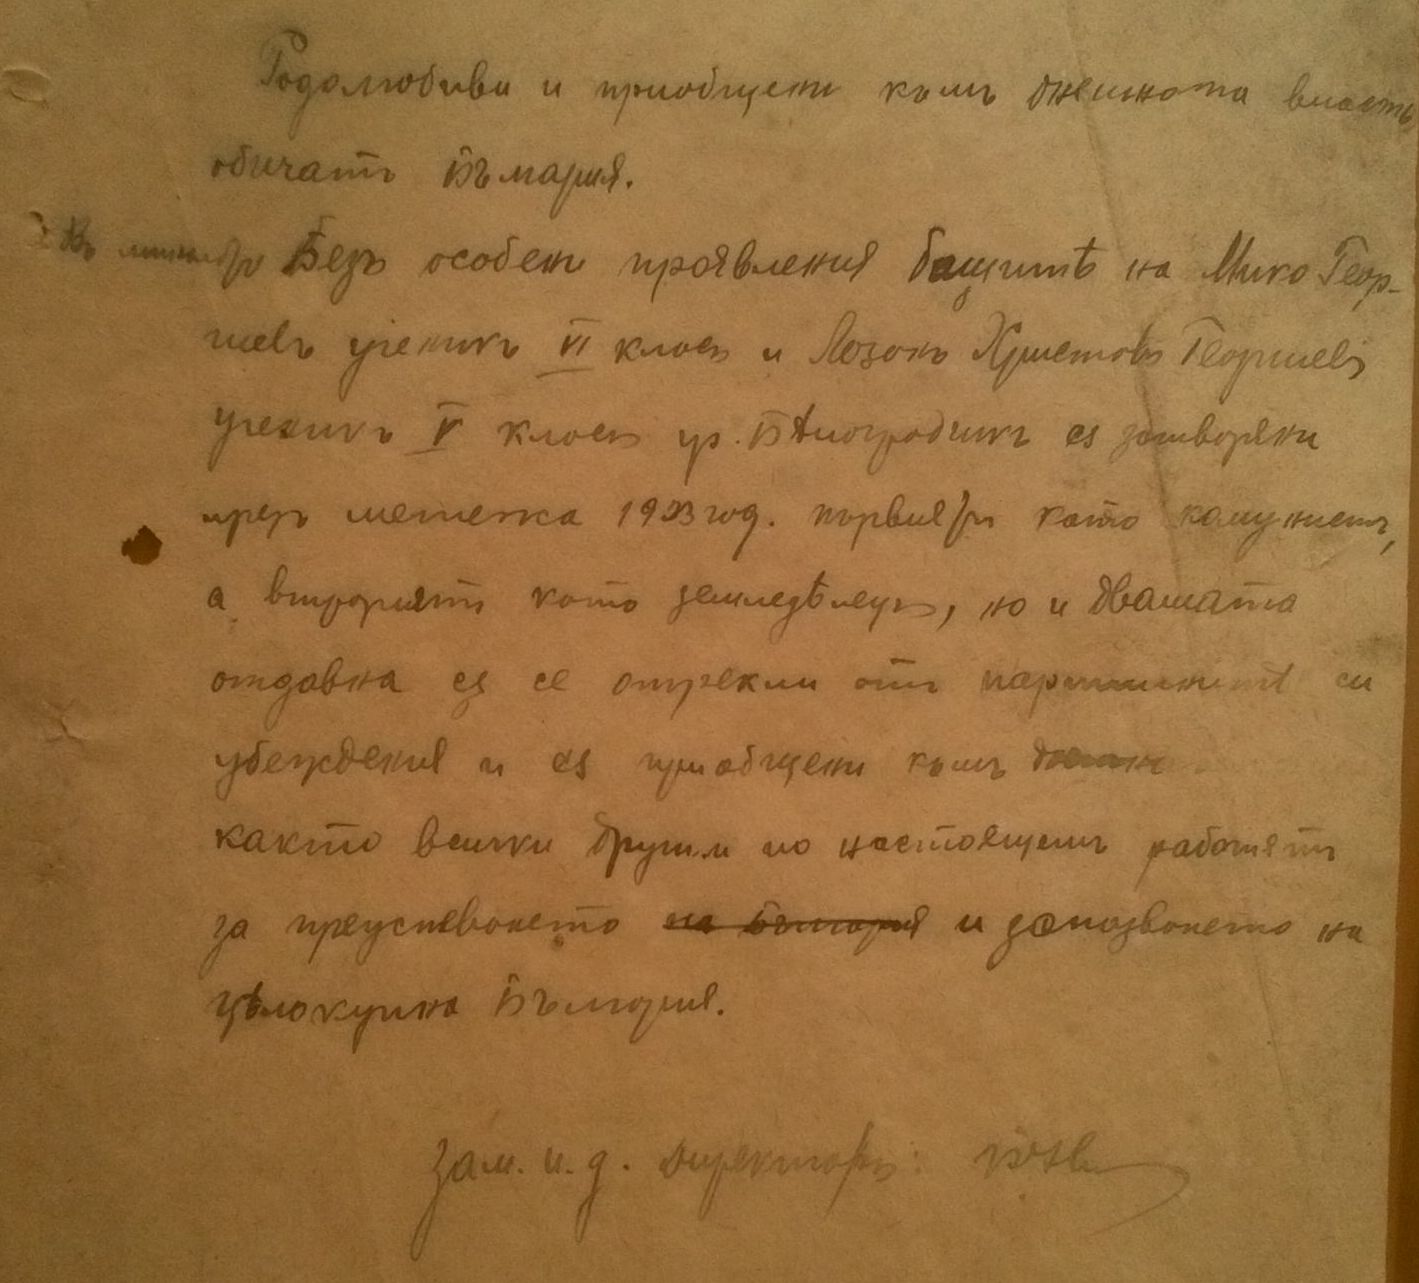 Родолюбиви и приобщени къмъ днешната власть,
обичатъ България.
Въ Безъ особени проявления бащитѣ на Мико Геор-
гиевъ ученикъ VI класъ и Лозанъ Христовъ Георгиевъ
ученикъ V класъ гр. Бѣлоградчикъ сѫ затваряни
презъ метежа 1923 год. първиятъ като комунистъ,
а вториятъ като земледѣлецъ, но и двамата
отдавна сѫ се отрекли отъ партийнитѣ си
убеждения и сѫ приобщени къмъ
както всички други по настоящемъ работятъ
за преуспеването на България и запазването на
цѣлокупна България.
Зам. и. д. директоръ: